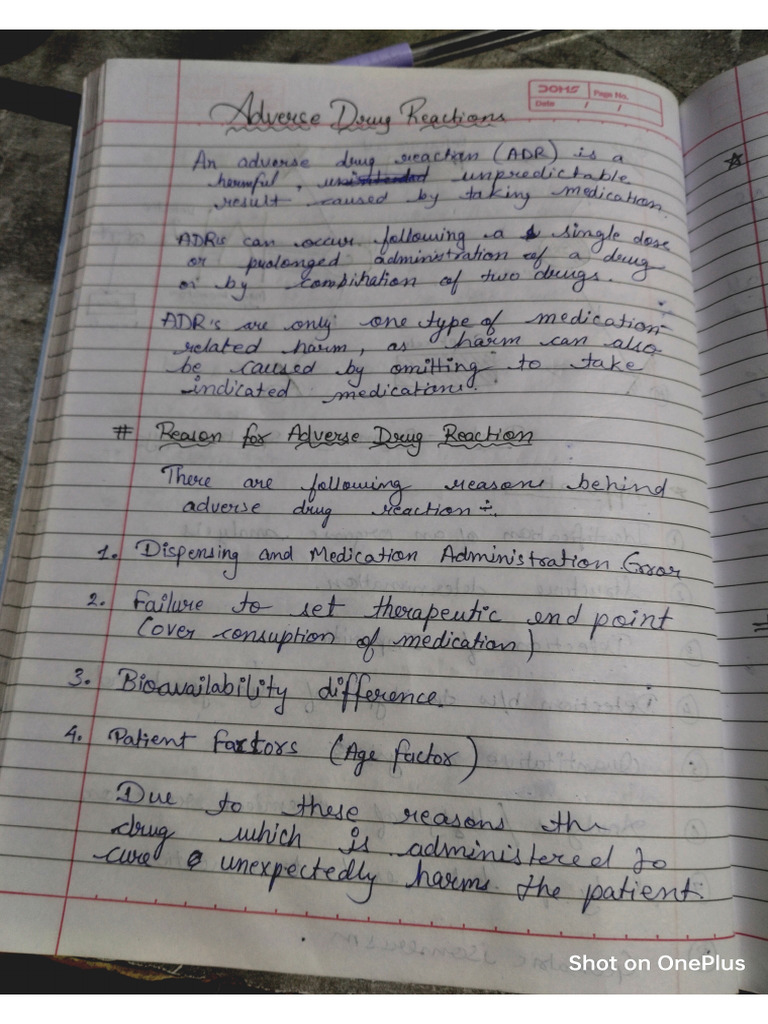 DOMS
Page No.
Date / /
Adverse Drug Reactions
An adverse drug reaction (ADR) is a
harmful, unintended unpredictable
result caused by taking medication.
ADRs can occur following a single dose
or prolonged administration of a drug
or by combination of two drugs.
ADR's are only one type of medication
related harm, as harm can also
be caused by omitting to take
indicated medications.
# Reason for Adverse Drug Reaction
There are following reasons behind
adverse drug reaction ÷
1. Dispensing and Medication Administration Error
2. Failure to set therapeutic end point
(over consuption of medication)
3. Bioavailability difference.
4. Patient Factors (Age factor)
Due to these reasons the
drug which is administered to
cure unexpectedly harms the patient.
Shot on OnePlus